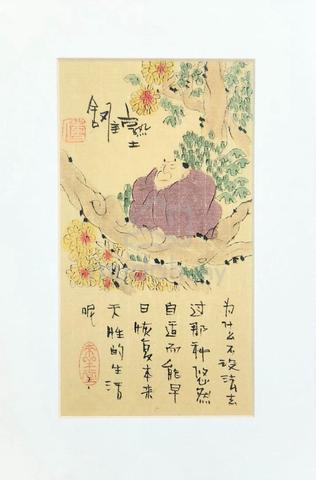 为什么不设法去
过那种悠然
自适而能早
日恢复本来
天胜的生活
呢